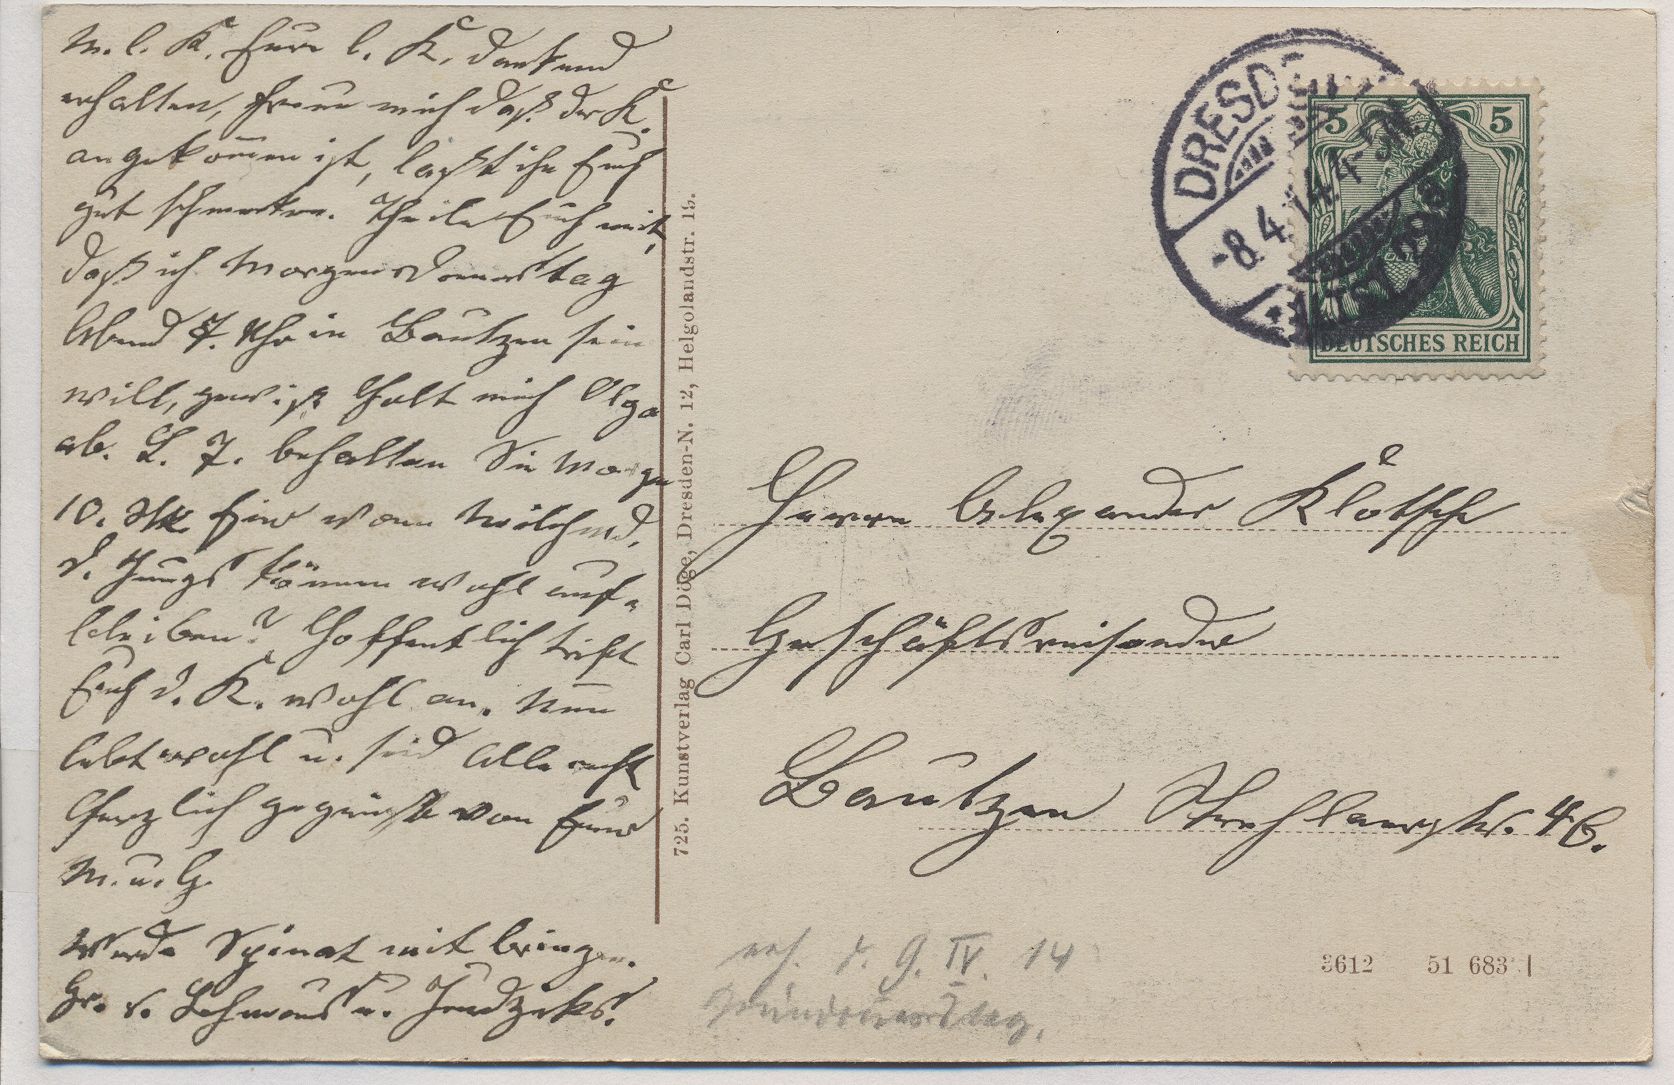 M. l. K. Eure l. K. dankend
erhalten, freue mich daß der K.
angekommen ist, laßt ihn Euch
gut schmecken. Theile Euch mit,
daß ich Morgen Donnerstag
Abend 7. Uhr in Bautzen sein
will, gewiß holt mich Olga
ab. L. F. behalten Sie Morgen
10. Stk Eier wenn möchend,
d. Jungs können wohl auf-
bleiben? Hoffentlich trifft
Euch d. K. wohl an. Nun
lebt wohl u. seid Alle recht
herzlich gegrüßt von Eurer
M. u. G.
Werde Spinat mit bringen.
Gr. v. Lehmans u.
725. Kunstverlag Carl Döge, Dresden-N. 12, Helgolandstr. 19.
DRESDEN
-8.4.14.4-5N.
ALTST.
5 5
DEUTSCHES REICH
Herrn Alexander Klötzsche
Geschäftsreisender
Bautzen Strehlaerstr. 46.
erh. d. 9. IV. 14
Gründonnerstag.
3612 51 683